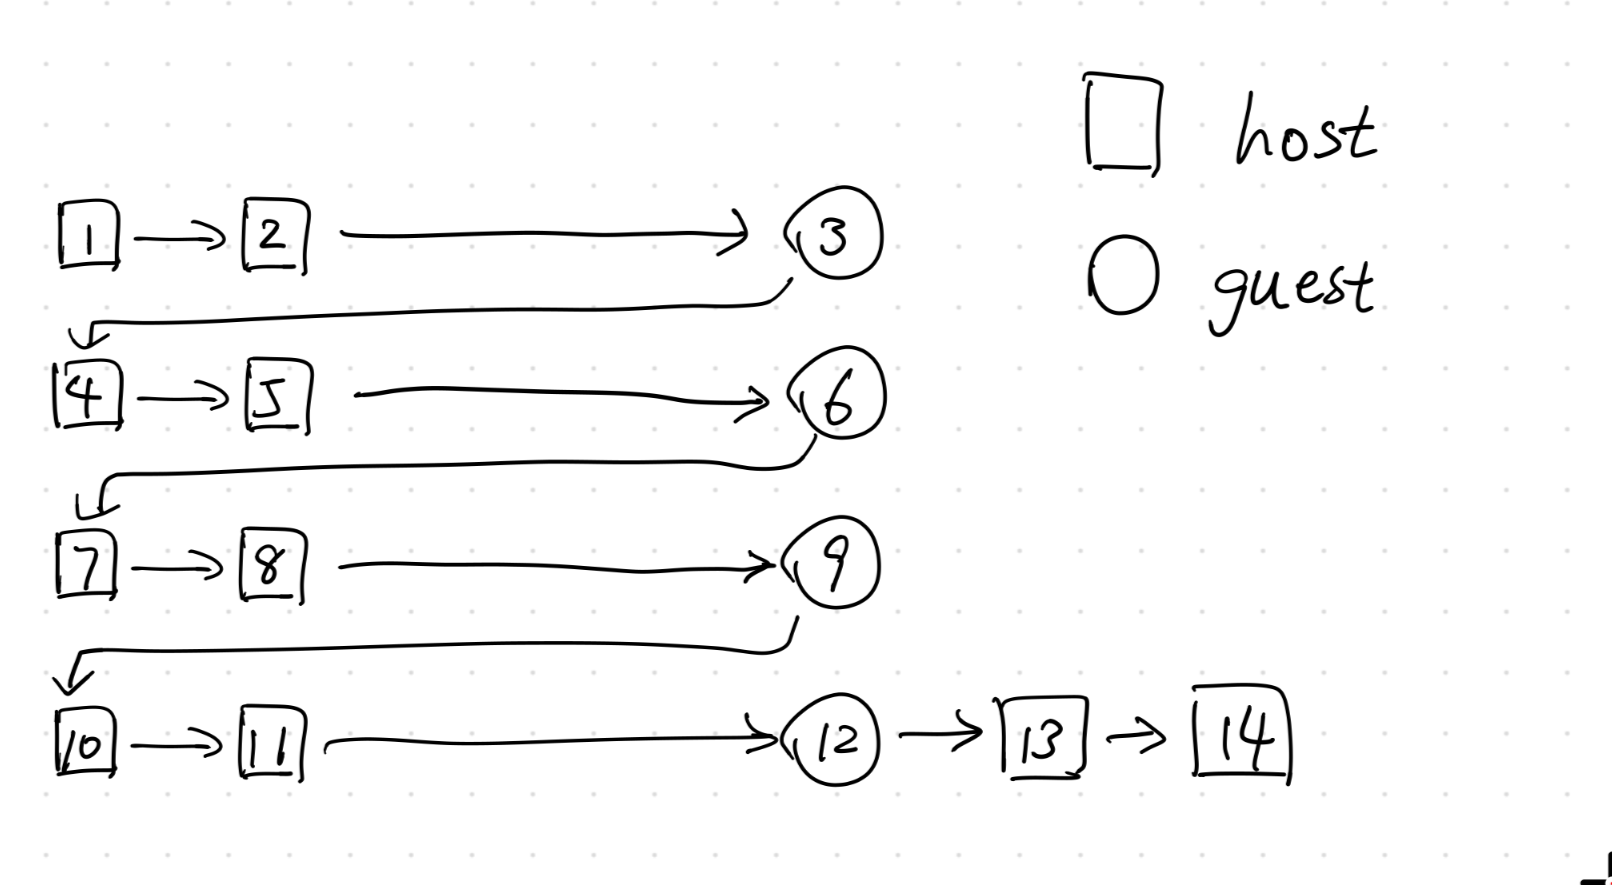 host
guest
1 2 3
4 5 6
7 8 9
10 11 12 13 14